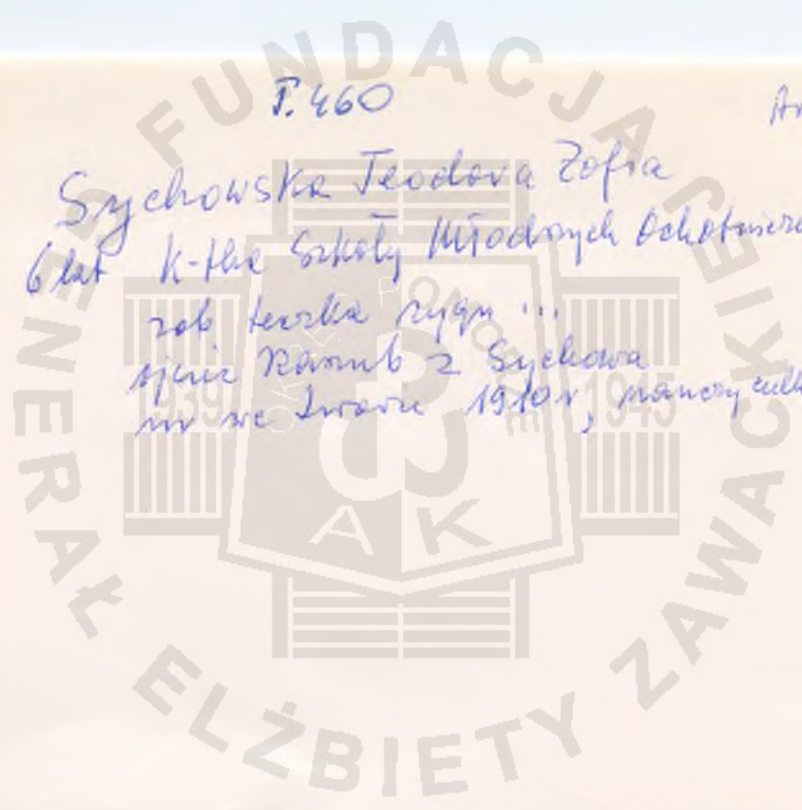 T. 460
Ar
Sychowska Teodora Zofia
6 lat K-tka Szkoły Młodszych Ochotnicz
zob teczka sygn ...
ojciec Kaszub z Sychowa
ur we Lwowie 1910 r, nauczyciel
FUNDACJA
GENERAŁ ELŻBIETY ZAWACKIEJ
POMORZE
1939 1945
AK